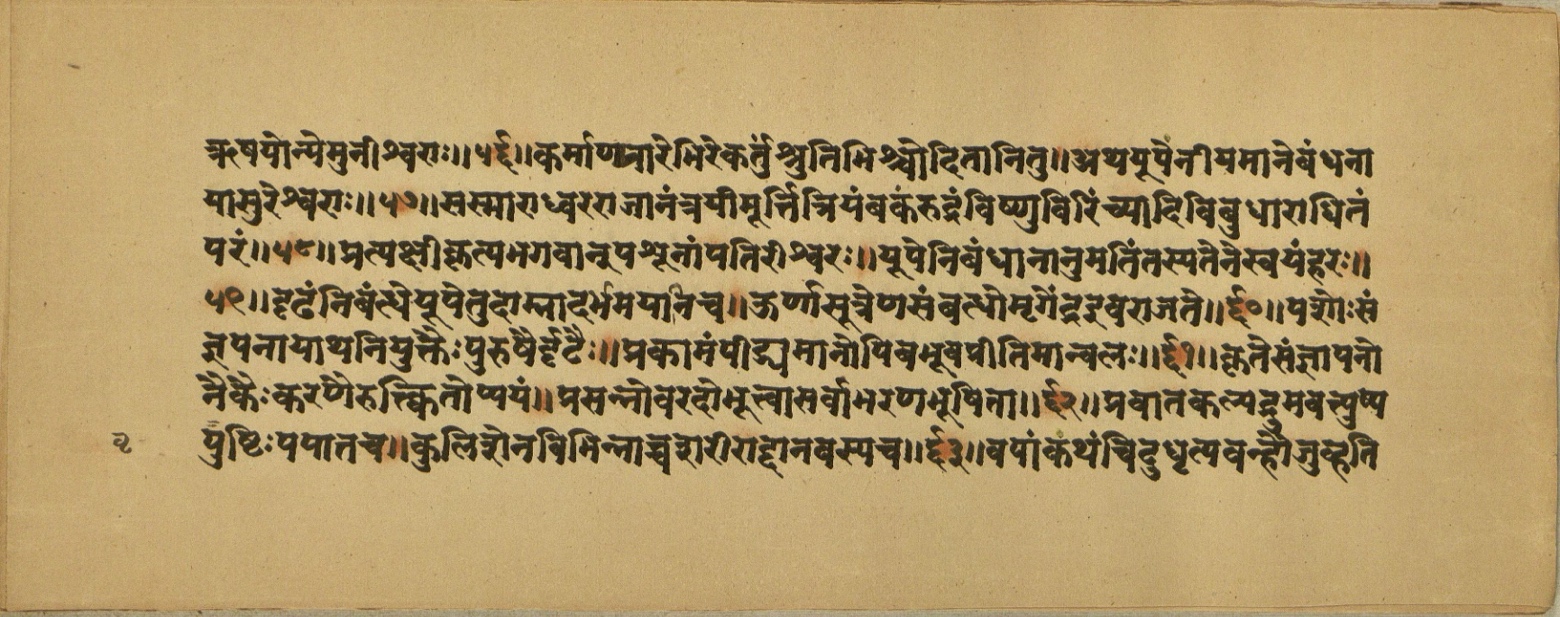 ऋषयोन्येमुनीश्वराः॥५६॥कर्माण्यारेभिरेकर्तुंश्रुतिभिश्चोदितानितु॥अथयूपेनीयमानेबंधना
यासुरेश्वराः॥५७॥सस्माराध्वरराजानंत्रयीमूर्त्तित्रियंबकंरुद्रंविष्णुविरिंच्यादिविबुधाराधितं
परं॥५८॥प्रत्यक्षीकृत्यभगवान्पशूनांपतिरीश्वरः॥यूपेनिबंधानानुमतिंतस्यतेनैस्वयंहरः॥
५९॥दृढंनिबंत्ध्येयूपेतुदाम्नादर्भमयानिच॥ऊर्णासूत्रेणसंबत्ध्योमृगेंद्रइवराजते॥६०॥पशोःसं
ज्ञपनायाथनियुक्तैःपुरुषैर्दृढैः॥प्रकामंपीड्यमानोपिबभूवप्रीतिमान्बलः॥६१॥कृतेसंज्ञापनो
नैकैःकरणैरुत्त्कितोप्ययं॥प्रसन्नोवरदोभूत्वासर्वाभरणभूषिता॥६२॥प्रवातकल्पद्रुमवत्पुष्प
पुष्टिःपपातच॥कुलिशेनविभिन्नाच्चशरीराद्दानवस्यच॥६३॥वपांकथंचिदुधृत्यवन्हौजुव्हति